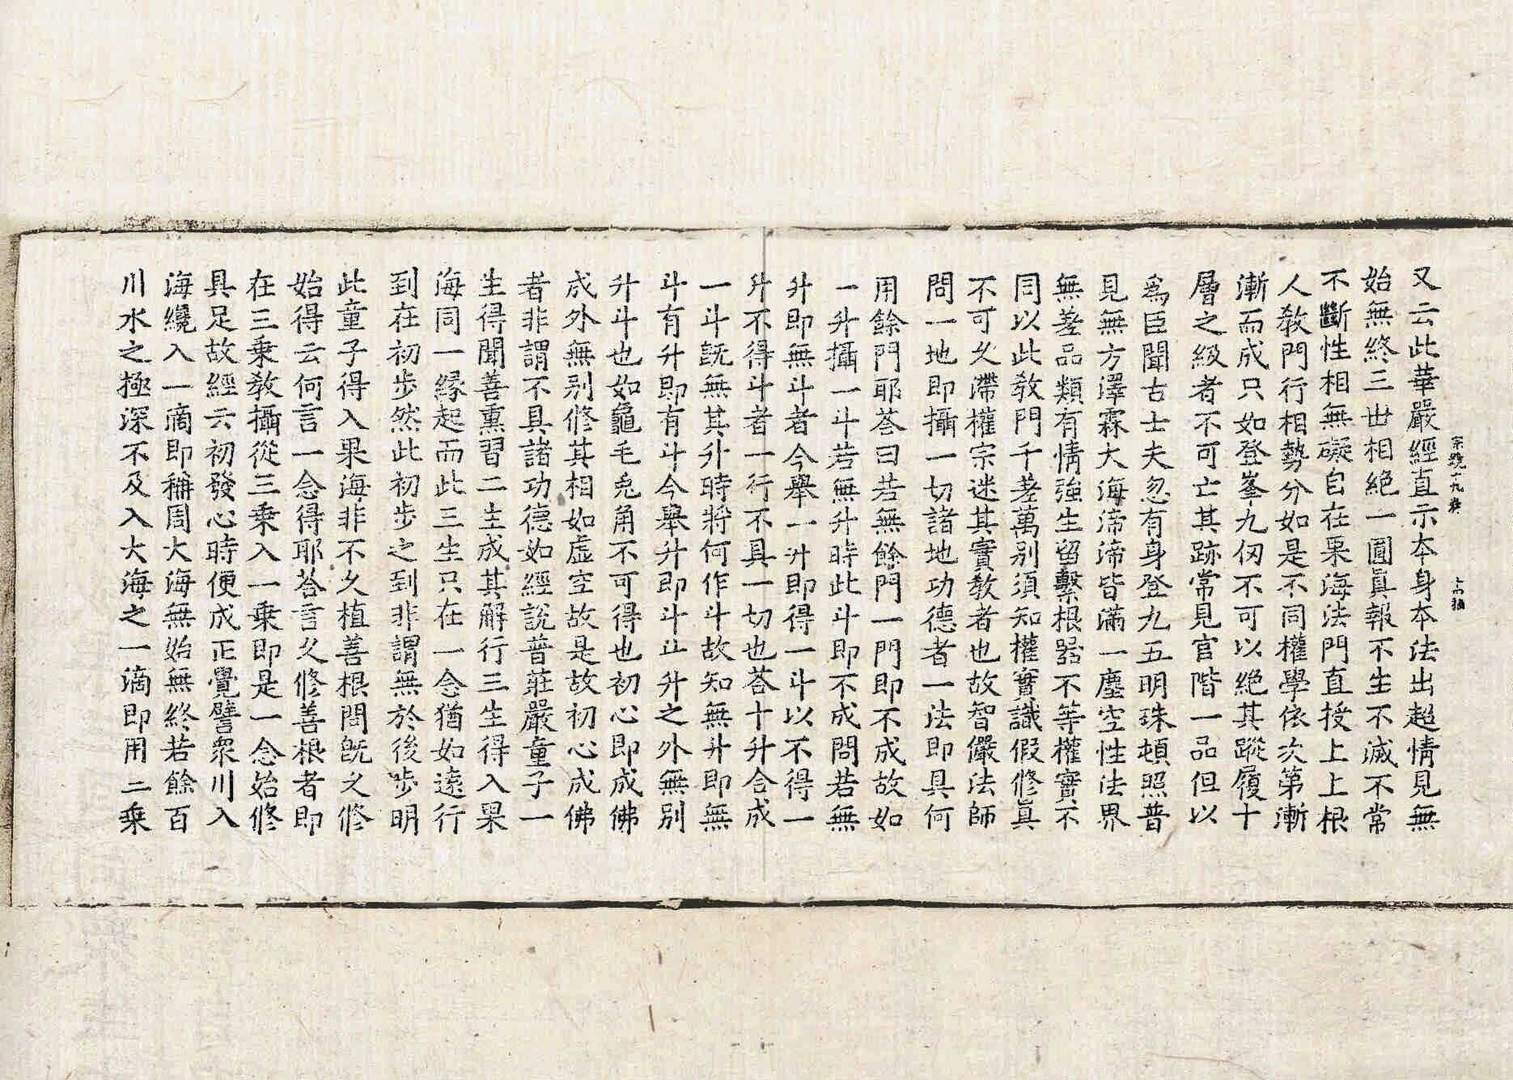 又云此華嚴經直示本身本法出超情見無
始無終三世相絕一圓眞報不生不滅不常
不斷性相無礙自在果海法門直授上上根
人敎門行相勢分如是不同權學依次第漸
漸而成只如登峯九仞不可以絕其蹤履十
層之級者不可亡其跡常見官階一品但以
爲臣聞古士夫忽有身登九五明珠頓照普
見無方澤霖大海滯滯皆滿一塵空性法界
無差品類有情強生留繫根器不等權實不
同以此敎門千差萬別須知權實識假修眞
不可久滯權宗迷其實敎者也故智儼法師
問一地即攝一切諸地功德者一法即具何
用餘門耶荅曰若無餘門一門即不成故如
一升攝一斗若無升時此斗即不成問若無
升即無斗者今舉一升即得一斗以不得一
升不得斗者一行不具一切也荅十升合成
一斗旣無其升時將何作斗故知無升即無
斗有升即有斗今舉升即斗斗升之外無別
升斗也如龜毛兎角不可得也初心即成佛
成外無別修其相如虛空故是故初心成佛
者非謂不具諸功德如經說普莊嚴童子一
生得聞善熏習二生成其解行三生得入果
海同一緣起而此三生只在一念猶如遠行
到在初步然此初步之到非謂無於後步明
此童子得入果海非不久植善根問旣久修
始得云何言一念得耶荅言久修善根者即
在三乘敎攝從三乘入一乘即是一念始修
具足故經云初發心時便成正覺譬衆川入
海纔入一滴即稱周大海無始無終若餘百
川水之極深不及入大海之一滴即用二乘